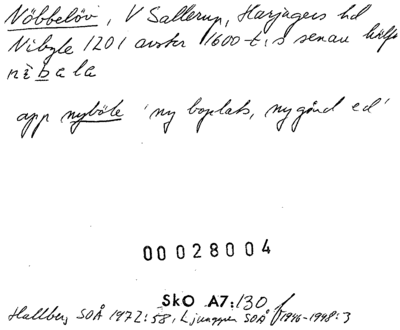 Nöbbelöv, V Sallerup, Harjagers hd
Nibyle 1201 avskr 1600-t:s senare hälft
nìbala
app nyböle 'ny boplats, ny gård ed'
00028004
SkO A7:130
Hallberg SOÅ 1972:58, Ljunggren SOÅ 1946-1948:3